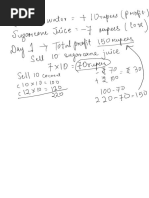 water = + 10 rupees (profit)
Sugarcane Juice = -7 rupees (loss)
Day 1 → Total profit 150 rupees
Sell 10 sugarcane juice
7x10 = 70 rupees
Sell 10
c 10 x 10 = 100
c 12 x 10 = 120
220
- ₹ 70
₹ 30
+ ₹ 100
100-70
220-70=150